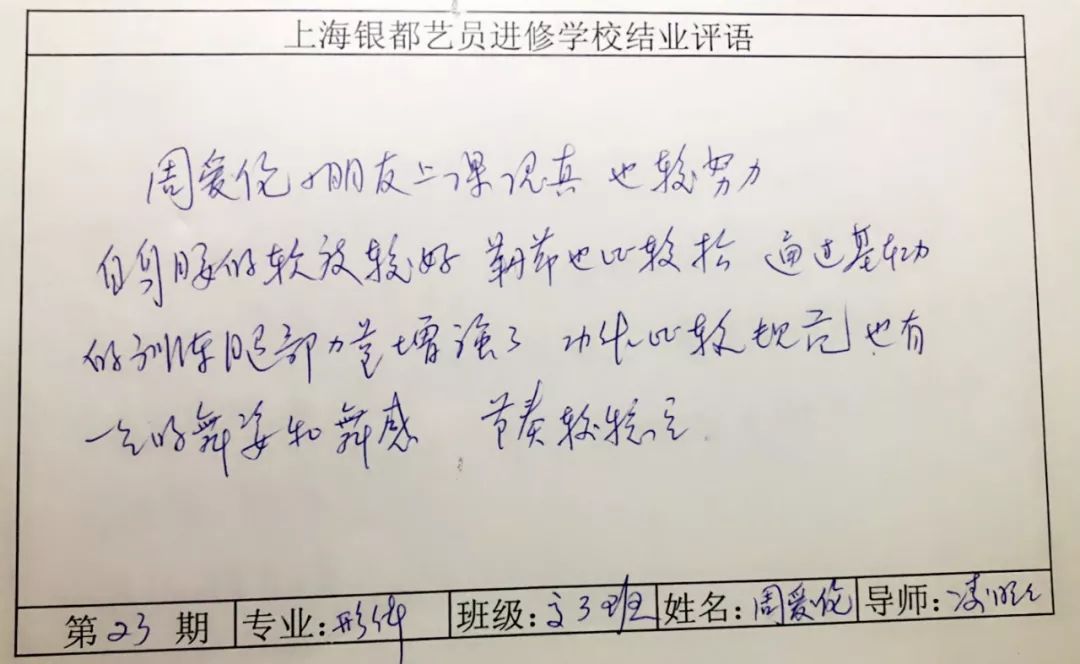 上海银都艺员进修学校结业评语
周爱伦小朋友上课认真 也较努力
自身腰的软放较好 节也比较 通过基本功
的训练腿部力量增强了 动作比较规范也有
一定的舞姿和舞感 节奏较稳定.
第23期 专业:形体 班级:班 姓名:周爱伦 导师:凌